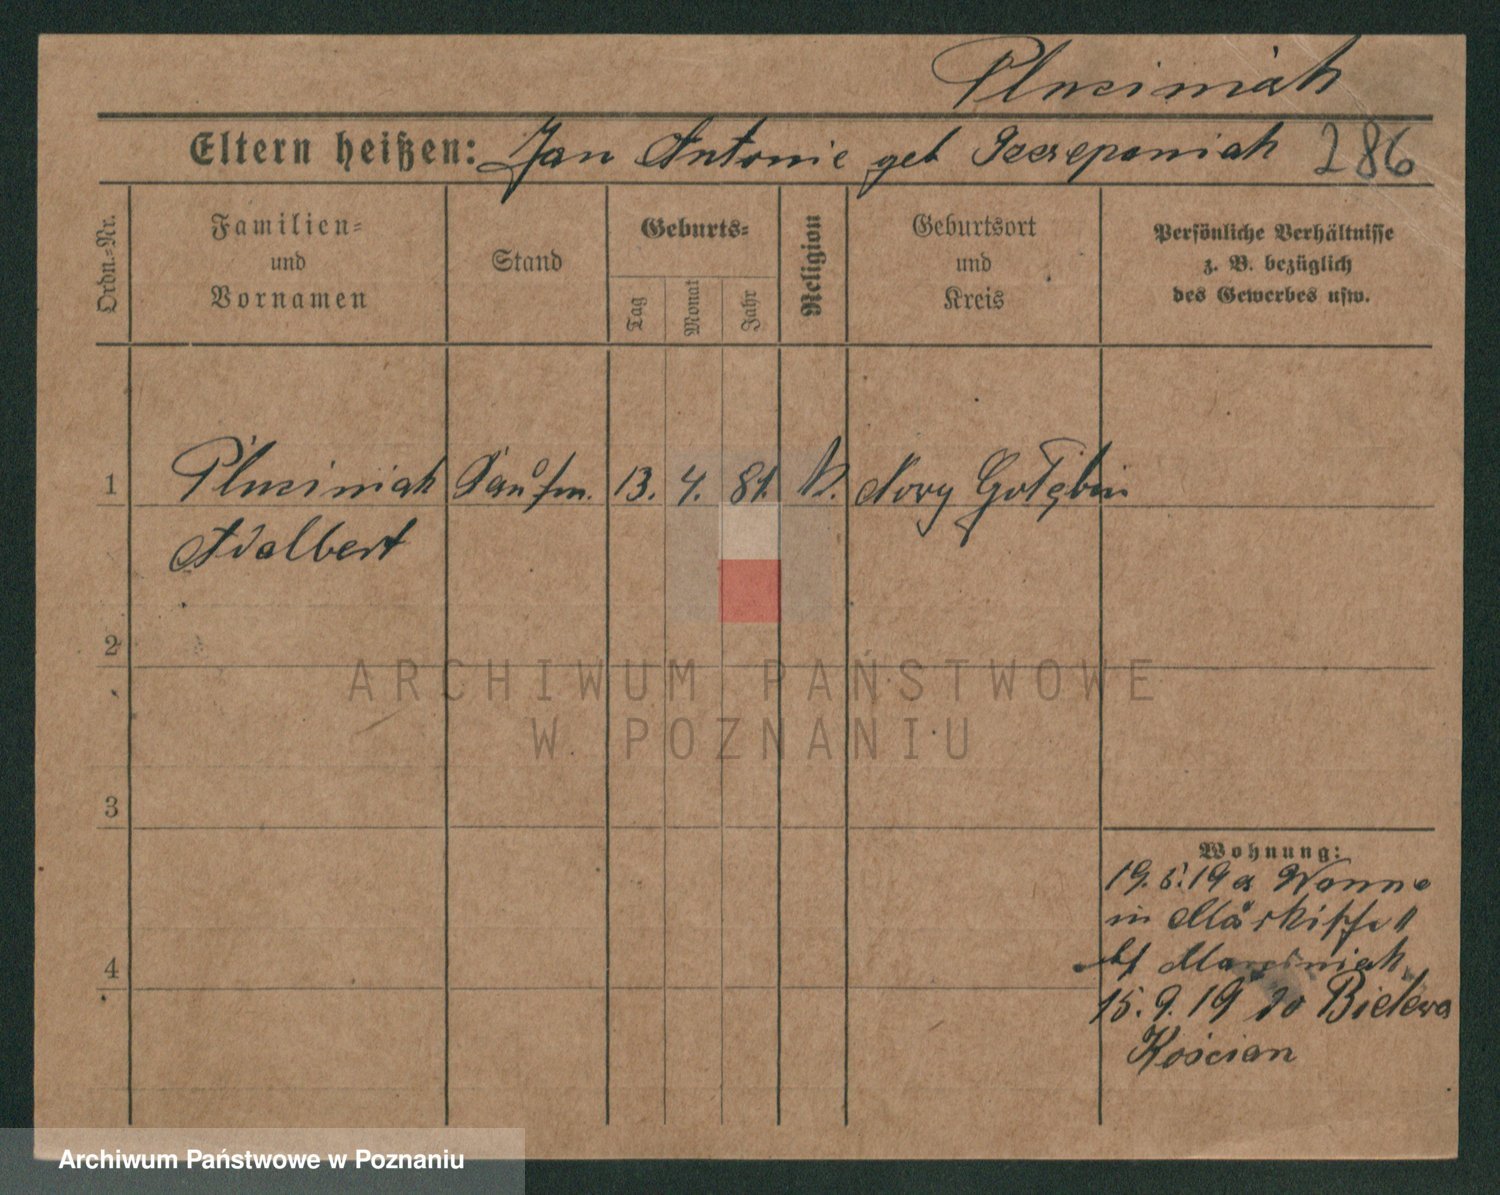 Pluciniak
Eltern heißen: Jan Antonie geb Szczepaniak 286
Ordn.-Nr.
Familien-
und
Vornamen
Stand
Geburts-
Tag
Monat
Jahr
Religion
Geburtsort
und
Kreis
Persönliche Verhältnisse
z. B. bezüglich
des Gewerbes usw.
1 Pluciniak Kaufm. 13. 4. 81. K. Nowy Gołębin
Adalbert
2
3
4
Wohnung:
19. 5. 19 a Wanne
in Märkische
bf Marciniak
15. 9. 19 do Bielewa
Kościan
ARCHIWUM PAŃSTWOWE
W POZNANIU
Archiwum Państwowe w Poznaniu